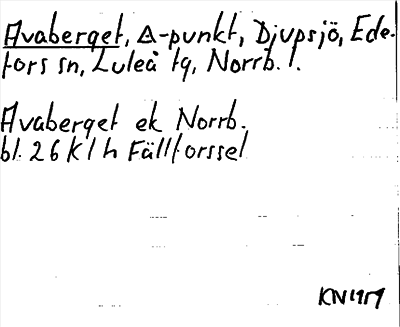 Avaberget, △-punkt, Djupsjö, Ede-
fors sn, Luleå tg, Norrb. l.
Avaberget ek Norrb.
bl. 26 K 1 h Fällforssel